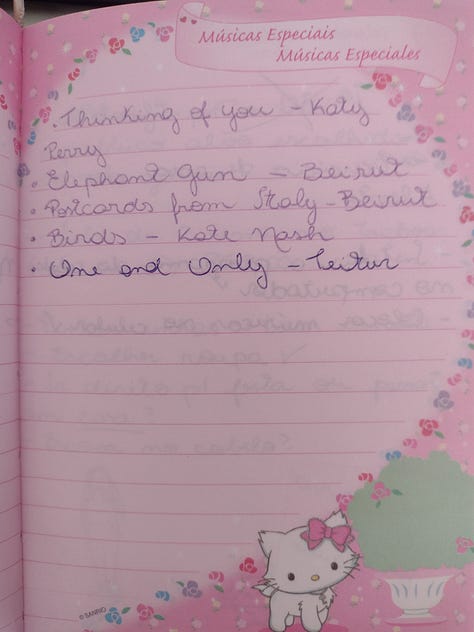 Músicas Especiais
Músicas Especiales
. Thinking of you - Katy
Perry
. Elephant Gun - Beirut
. Postcards from Italy - Beirut
. Birds - Kate Nash
. One and Only - Teitur
© SANRIO